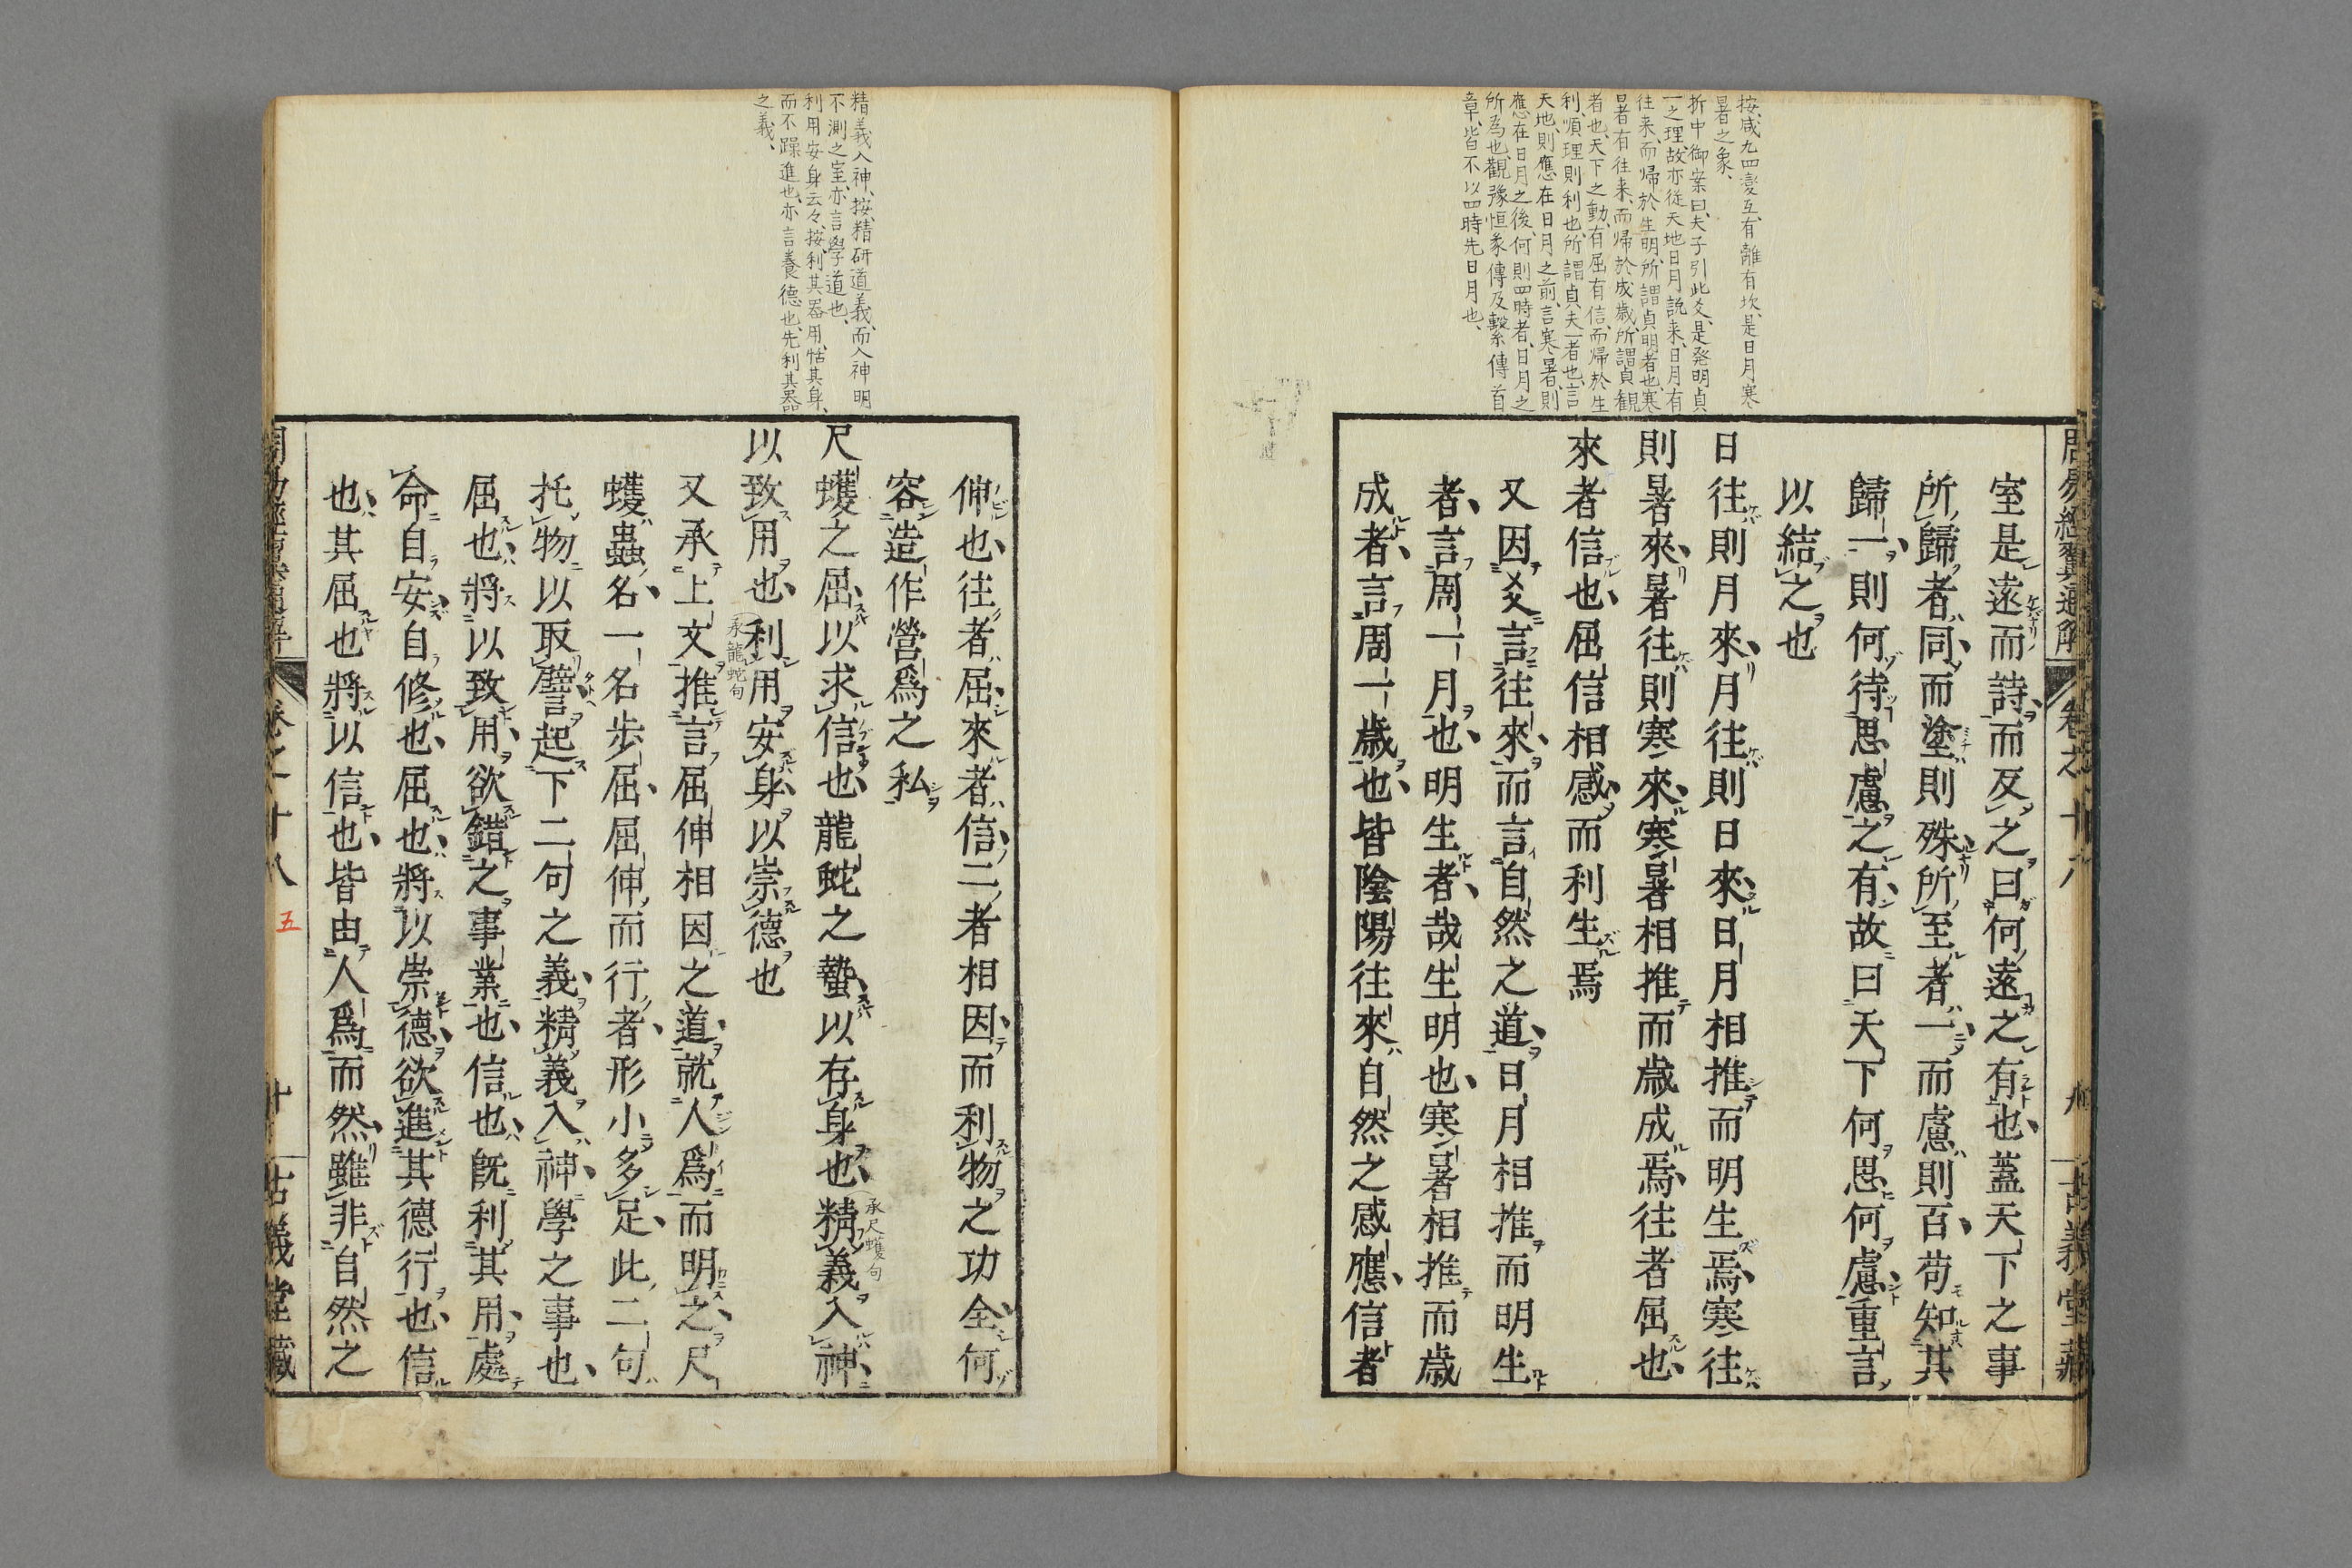 按、咸九四變互、有離有坎、是日月寒
暑之象、
折中御案曰、夫子引此爻、是発明貞
一之理、故亦従天地日月説来、日月有
往来、而帰於生明、所謂貞明者也、寒
暑有往来、而帰於成歳、所謂貞観
者也、天下之動、有屈有信、而帰於生
利、順理則利也、所謂貞夫一者也、言
天地、則應在日月之前、言寒暑、則
應在日月之後、何則四時者、日月之
所為也、觀豫恒彖傳及繫傳首
章、皆不以四時先日月也、
周易經翼通解 卷之十八 九 古義堂藏
室是遠而詩而反之曰何遠之有也蓋天下之事
所歸者同而塗則殊所至者一而慮則百苟知其
歸一則何待思慮之有故曰天下何思何慮重言
以結之也
日往則月來月往則日來日月相推而明生焉寒往
則暑來暑往則寒來寒暑相推而歲成焉往者屈也
來者信也屈信相感而利生焉
又因爻言往來而言自然之道日月相推而明生
者言周一月也明生者哉生明也寒暑相推而歲
成者言周一歲也皆陰陽往來自然之感應信者
精義入神、按、精研道義、而入神明
不測之室、亦言學道也、
利用安身云々、按、利其器用、怙其身、
而不躁進也、亦言養德也、先利其器
之義、
伸也往者屈來者信二者相因而利物之功全何
容造作營爲之私
尺蠖之屈以求信也龍蛇之蟄以存身也精義入神
承尺蠖句
以致用也利用安身以崇德也
承龍蛇句
又承上文推言屈伸相因之道就人爲而明之尺
蠖蟲名一名步屈屈伸而行者形小多足此二句
托物以取譬起下二句之義精義入神學之事也
屈也將以致用欲錯之事業也信也既利其用處
命自安自修也屈也將以崇德欲進其德行也信
也其屈也將以信也皆由人爲而然雖非自然之
卷之十八 五 十 古義堂藏